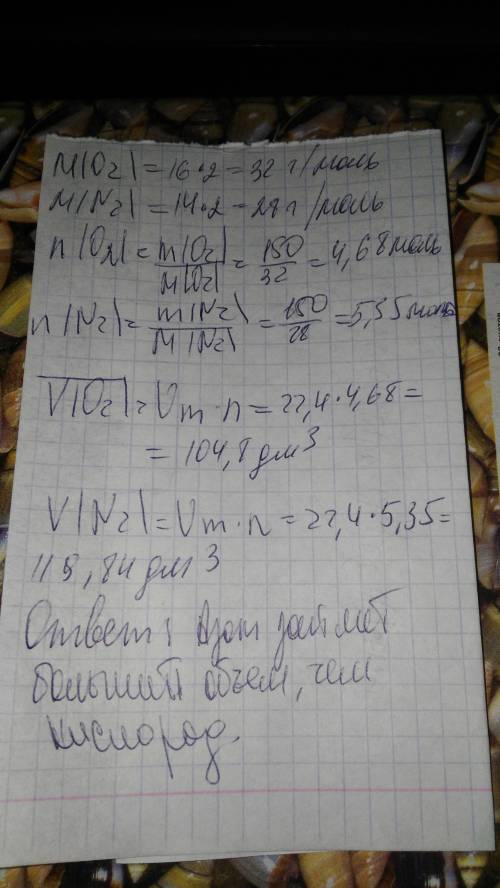 M(O₂) = 16·2 = 32 г/моль
M(N₂) = 14·2 = 28 г/моль
n(O₂) = m(O₂)/M(O₂) = 150/32 = 4,68 моль
n(N₂) = m(N₂)/M(N₂) = 150/28 = 5,35 моль
V(O₂) = Vm·n = 22,4·4,68 =
= 104,8 дм³
V(N₂) = Vm·n = 22,4·5,35 =
119,84 дм³
Ответ: Азот займет
больший объем, чем
кислород.